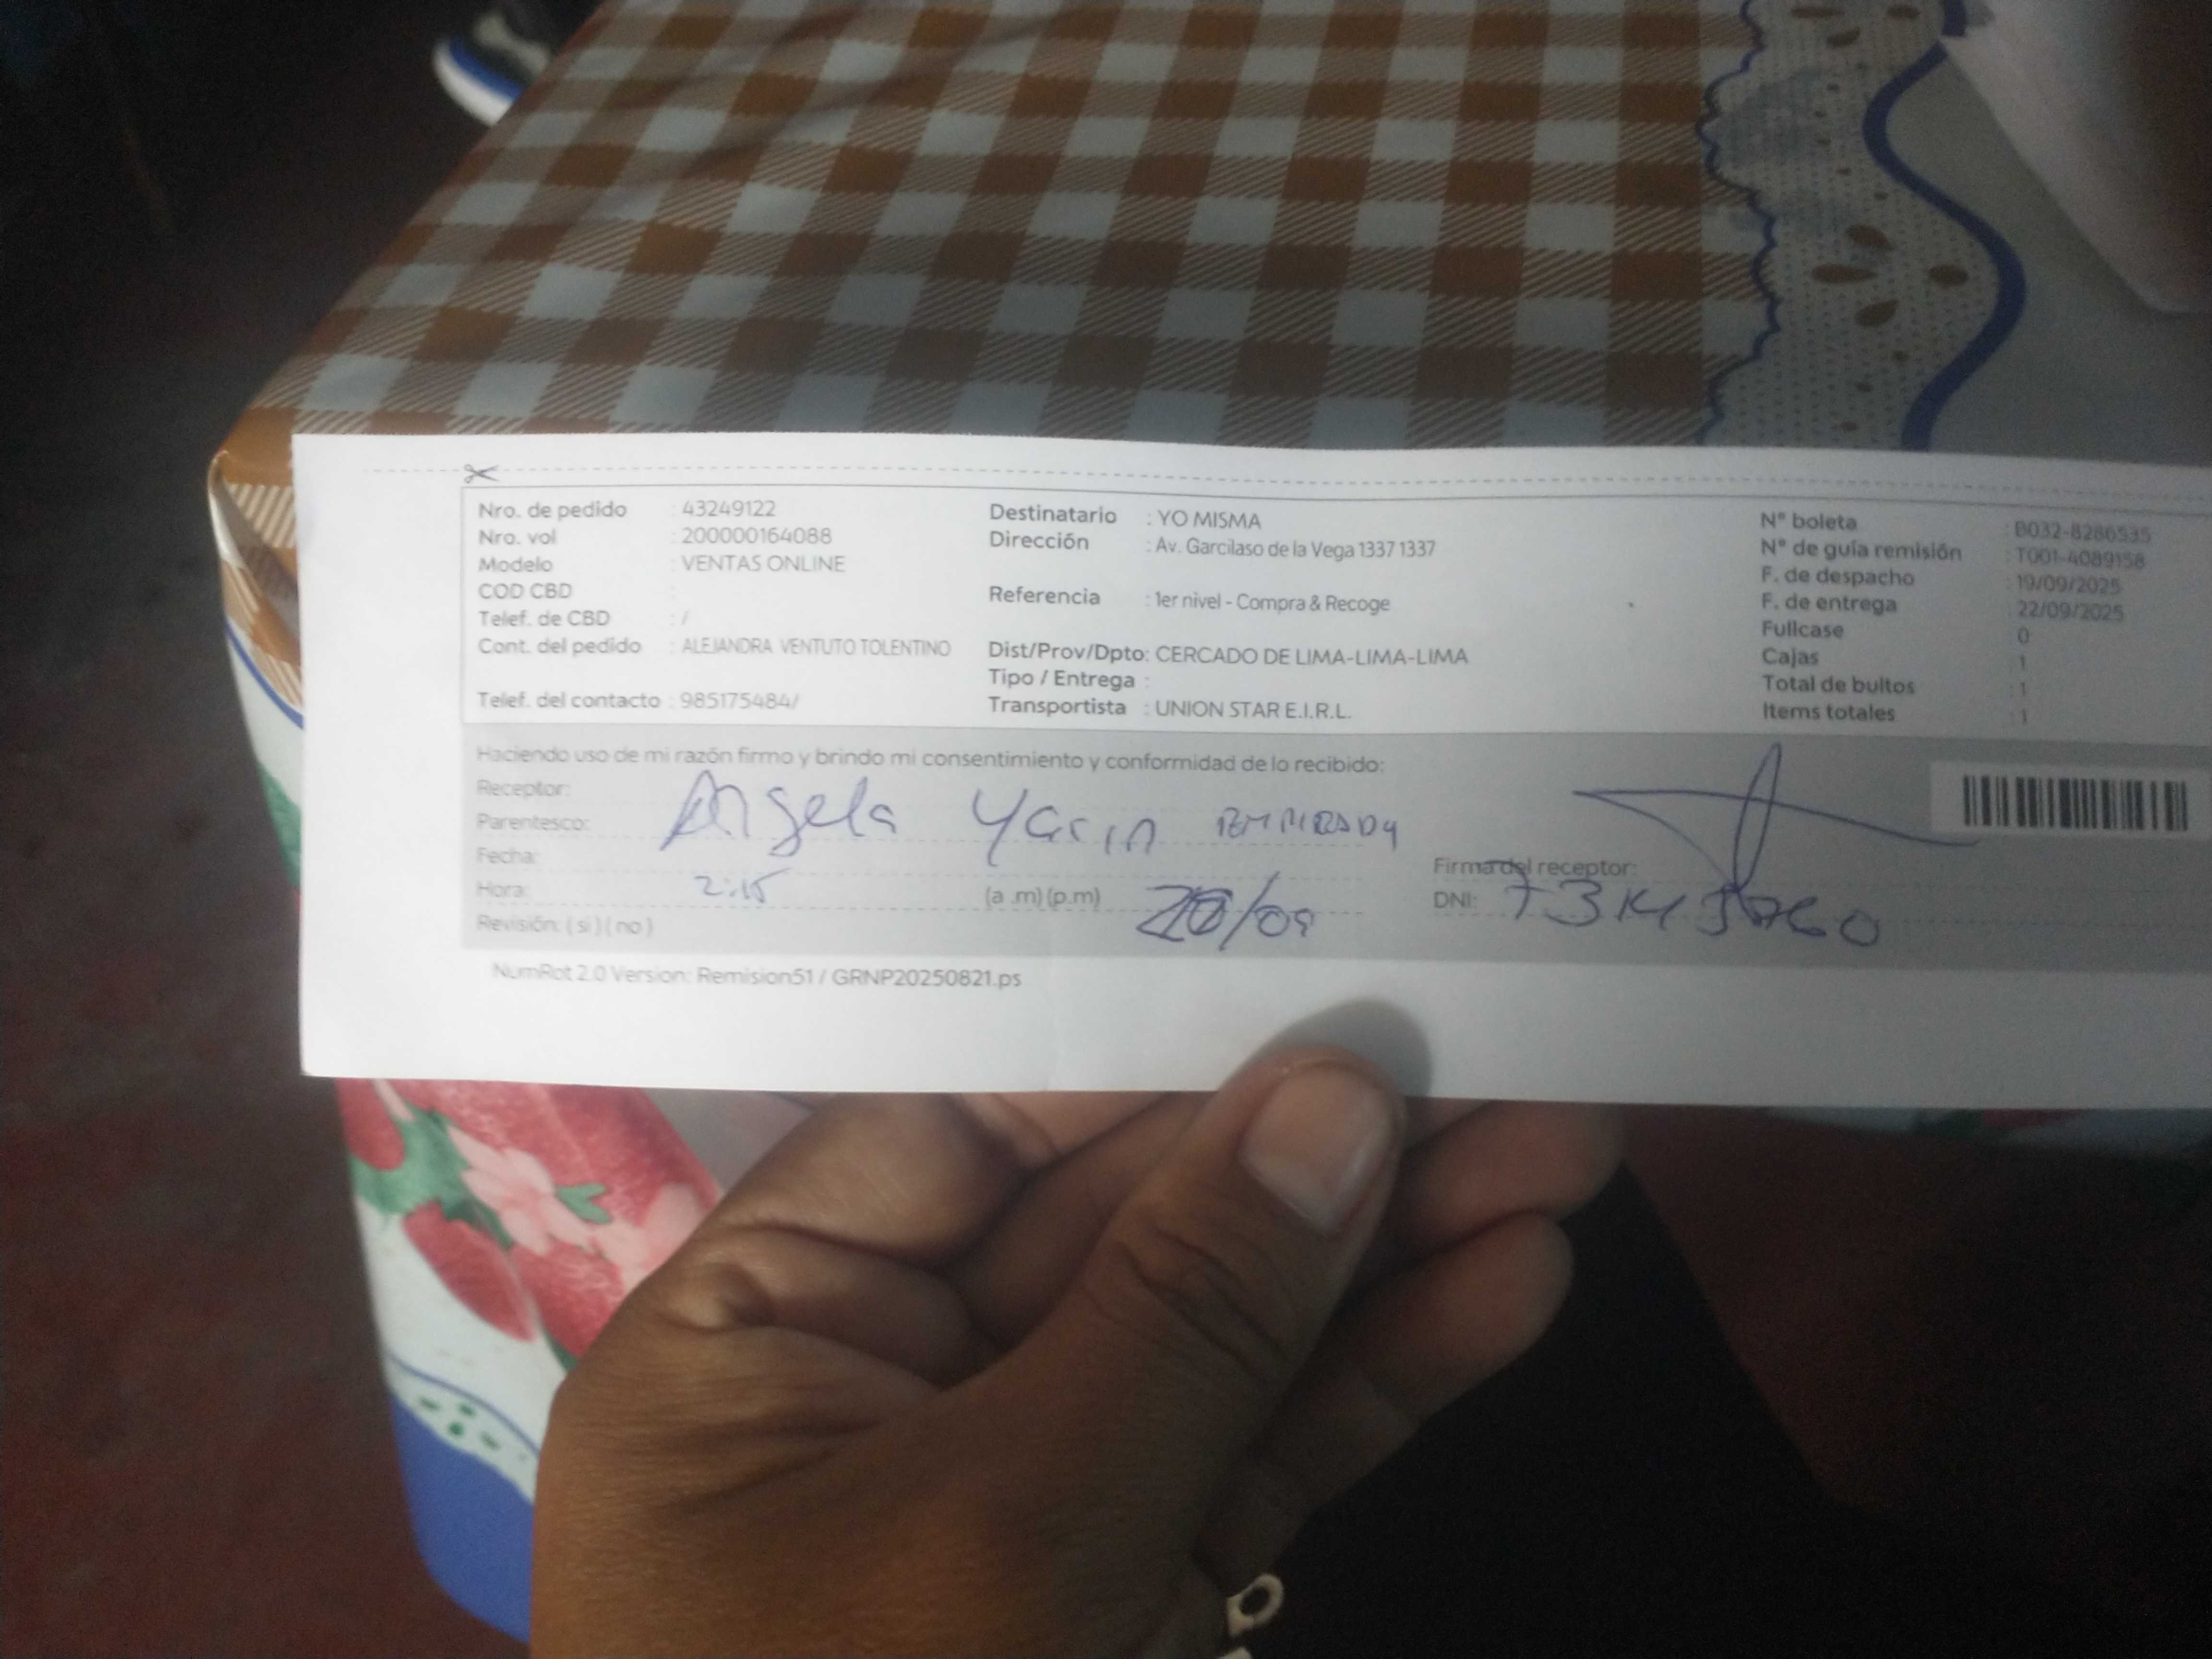 Nro. de pedido : 43249122
Nro. vol : 200000164088
Modelo : VENTAS ONLINE
COD CBD :
Telef. de CBD : /
Cont. del pedido : ALEJANDRA VENTUTO TOLENTINO
Telef. del contacto : 985175484/
Destinatario : YO MISMA
Dirección : Av. Garcilaso de la Vega 1337 1337
Referencia : 1er nivel - Compra & Recoge
Dist/Prov/Dpto: CERCADO DE LIMA-LIMA-LIMA
Tipo / Entrega :
Transportista : UNION STAR E.I.R.L.
N° boleta : B032-8286535
N° de guía remisión : T001-4089158
F. de despacho : 19/09/2025
F. de entrega : 22/09/2025
Fullcase 0
Cajas : 1
Total de bultos : 1
Items totales : 1
Haciendo uso de mi razón firmo y brindo mi consentimiento y conformidad de lo recibido:
Receptor:
Parentesco: Angela Yarin
Fecha:
Hora: 2:15 (a .m) (p.m) /09
Revisión: ( si ) ( no )
Firma del receptor:
DNI:
NumRot 2.0 Version: Remision51 / GRNP20250821.ps